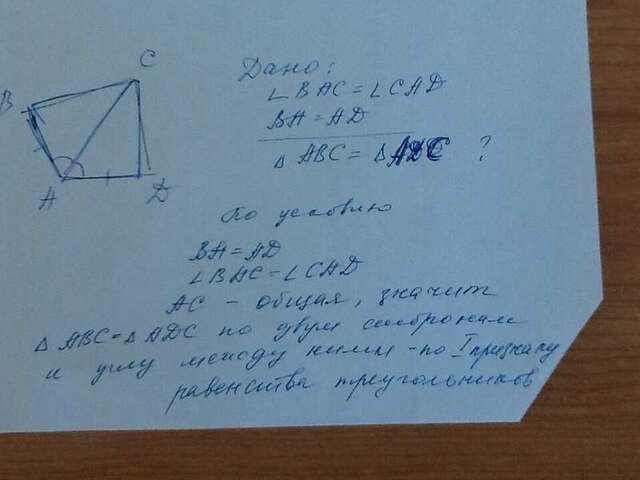 C
B
A
D
Дано:
∠BAC = ∠CAD
BA = AD
△ABC = △ADC ?
По условию
BA = AD
∠BAC = ∠CAD
AC - общая, значит
△ABC = △ADC по двум сторонам
и углу между ними - по I признаку
равенства треугольников